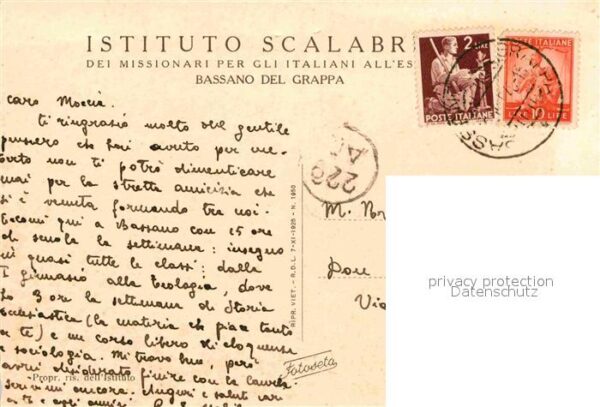 ISTITUTO SCALABR
DEI MISSIONARI PER GLI ITALIANI ALL'ES
BASSANO DEL GRAPPA
2 LIRE
POSTE ITALIANE
POSTE ITALIANE
10 LIRE
220
caro Moccia
ti ringrazio molto del gentile
pensiero che hai avuto per me.
Certo non ti potrò dimenticare
mai per la stretta amicizia che
si è venuta formando tra noi.
Eccomi qui a Bassano con 15 ore
di scuola la settimana: insegno
in quasi tutte le classi: dalla
I ginnasio alla teologia, dove
ho 3 ore la settimana di Storia
ecclesiastica (la materia che piace tanto
a te) e un corso libero di eloquenza
e sociologia. Mi trovo bene, però
avrei desiderato finire con la laurea.
Scrivimi ancora. Auguri e saluti cari
a te e agli amici.
Propr. ris. dell'Istituto
RIPR. VIET. - R.D.L. 7-XI-1925 - N. 1950
Fotoseta
M.
Don
Via
privacy protection
Datenschutz